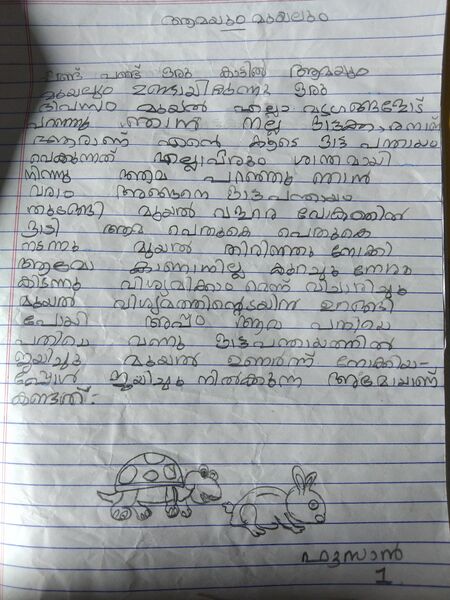 ആമയും മുയലും
പണ്ട് പണ്ട് ഒരു കാട്ടിൽ ആമയും
മുയലും ഉണ്ടായിരുന്നു ഒരു
ദിവസം മുയൽ എല്ലാ മൃഗങ്ങളോട്
പറഞ്ഞു ഞാൻ നല്ല ഓട്ടക്കാരനാണ്
ആരാണ് എന്റെ കൂടെ ഓട്ട പന്തായം
വെക്കുന്നത് എല്ലാപീരും ശാന്തമായി
നിന്നു ആമ പറഞ്ഞു ഞാൻ
വരാം അങ്ങനെ ഓട്ടപന്തയം
തുടങ്ങി മുയൽ വളരെ വേഗത്തിൽ
ഓടി ആമ പെതുകെ പെതുകെ
നടന്നു മുയൽ തിരിഞ്ഞു നോക്കി
ആമയെ കാണാനില്ല കുറച്ചു നേരം
കിടന്നു വിശ്രമിക്കാം മെന്ന് വിചാരിച്ചു
മുയൽ വിശ്രമത്തിന്റെടയിൽ ഉറങ്ങി
പോയി അപ്പം ആമ പതിയെ
പതിയെ വന്നു ഓട്ടപന്തായത്തിൽ
ജയിച്ചു മുയൽ ഉണർന്ന് നോക്കിയ-
പ്പോൾ ജയിച്ചു നിൽക്കുന്ന ആമയാണ്
കണ്ടത്:
ഹുസാൻ
1